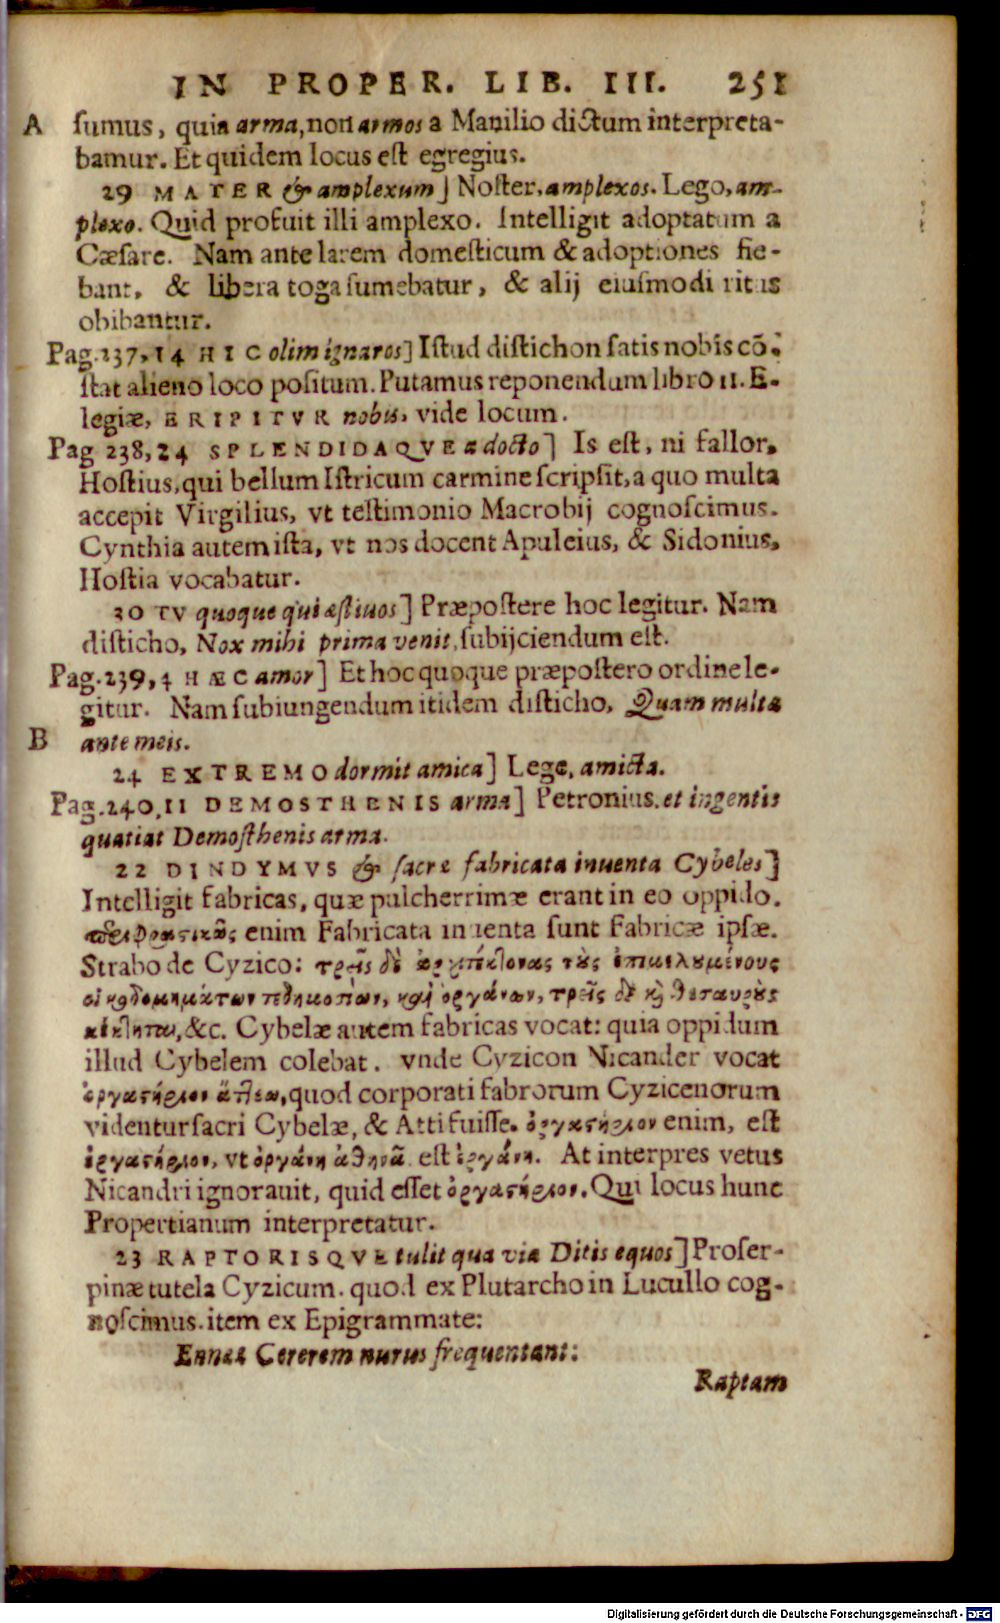 IN PROPER. LIB. III. 251
A sumus, quia arma, non armos a Manilio dictum interpreta-
bamur. Et quidem locus est egregius.
29 MATER & amplexum] Noster, amplexos. Lego, am-
plexo. Quid profuit illi amplexo. Intelligit adoptatum a
Cæsare. Nam ante larem domesticum & adoptiones fie-
bant, & libera toga sumebatur, & alij eiusmodi ritus
obibantur.
Pag. 237, 14 HIC olim ignaros] Istud distichon satis nobis cō-
stat alieno loco positum. Putamus reponendum libro II. E-
legiæ, ERIPITVR nobis, vide locum.
Pag 238, 24 SPLENDIDAQVE a docto] Is est, ni fallor,
Hostius, qui bellum Istricum carmine scripsit, a quo multa
accepit Virgilius, vt testimonio Macrobij cognoscimus.
Cynthia autem ista, vt nos docent Apuleius, & Sidonius,
Hostia vocabatur.
30 TV quoque qui æstiuos] Præpostere hoc legitur. Nam
disticho, Nox mihi prima venit, subijciendum est.
Pag. 239, 4 HÆC amor] Et hoc quoque præpostero ordine le-
gitur. Nam subiungendum itidem disticho, Quam multa
B ante meis.
24 EXTREMO dormit amica] Lege, amicta.
Pag. 240, 11 DEMOSTHENIS arma] Petronius. et ingentis
quatiat Demosthenis arma.
22 DINDYMVS & sacræ fabricata inuenta Cybeles]
Intelligit fabricas, quæ pulcherrimæ erant in eo oppido.
enim Fabricata inuenta sunt Fabricæ ipsæ.
Strabo de Cyzico: τρεῖς δὲ ἀρχιτέκτονας τοὺς ἐπιμελουμένους
οἰκοδομημάτων καὶ ὀργάνων, τρεῖς δὲ κỳ θησαυροὺς
&c. Cybelæ autem fabricas vocat: quia oppidum
illud Cybelem colebat. vnde Cyzicon Nicander vocat
quod corporati fabrorum Cyzicenorum
videntur sacri Cybelæ, & Atti fuisse. ὀργαστήριον enim, est
ἐργαστήριον, vt ὀργάνη ἀθηνᾶ est ἐργάνη. At interpres vetus
Nicandri ignorauit, quid esset ὀργαστήριον. Qui locus hunc
Propertianum interpretatur.
23 RAPTORISQVE tulit qua via Ditis equos] Proser-
pinæ tutela Cyzicum. quod ex Plutarcho in Lucullo cog-
noscimus. item ex Epigrammate:
Ennææ Cererem nurus frequentant:
Raptam
Digitalisierung gefördert durch die Deutsche Forschungsgemeinschaft - DFG